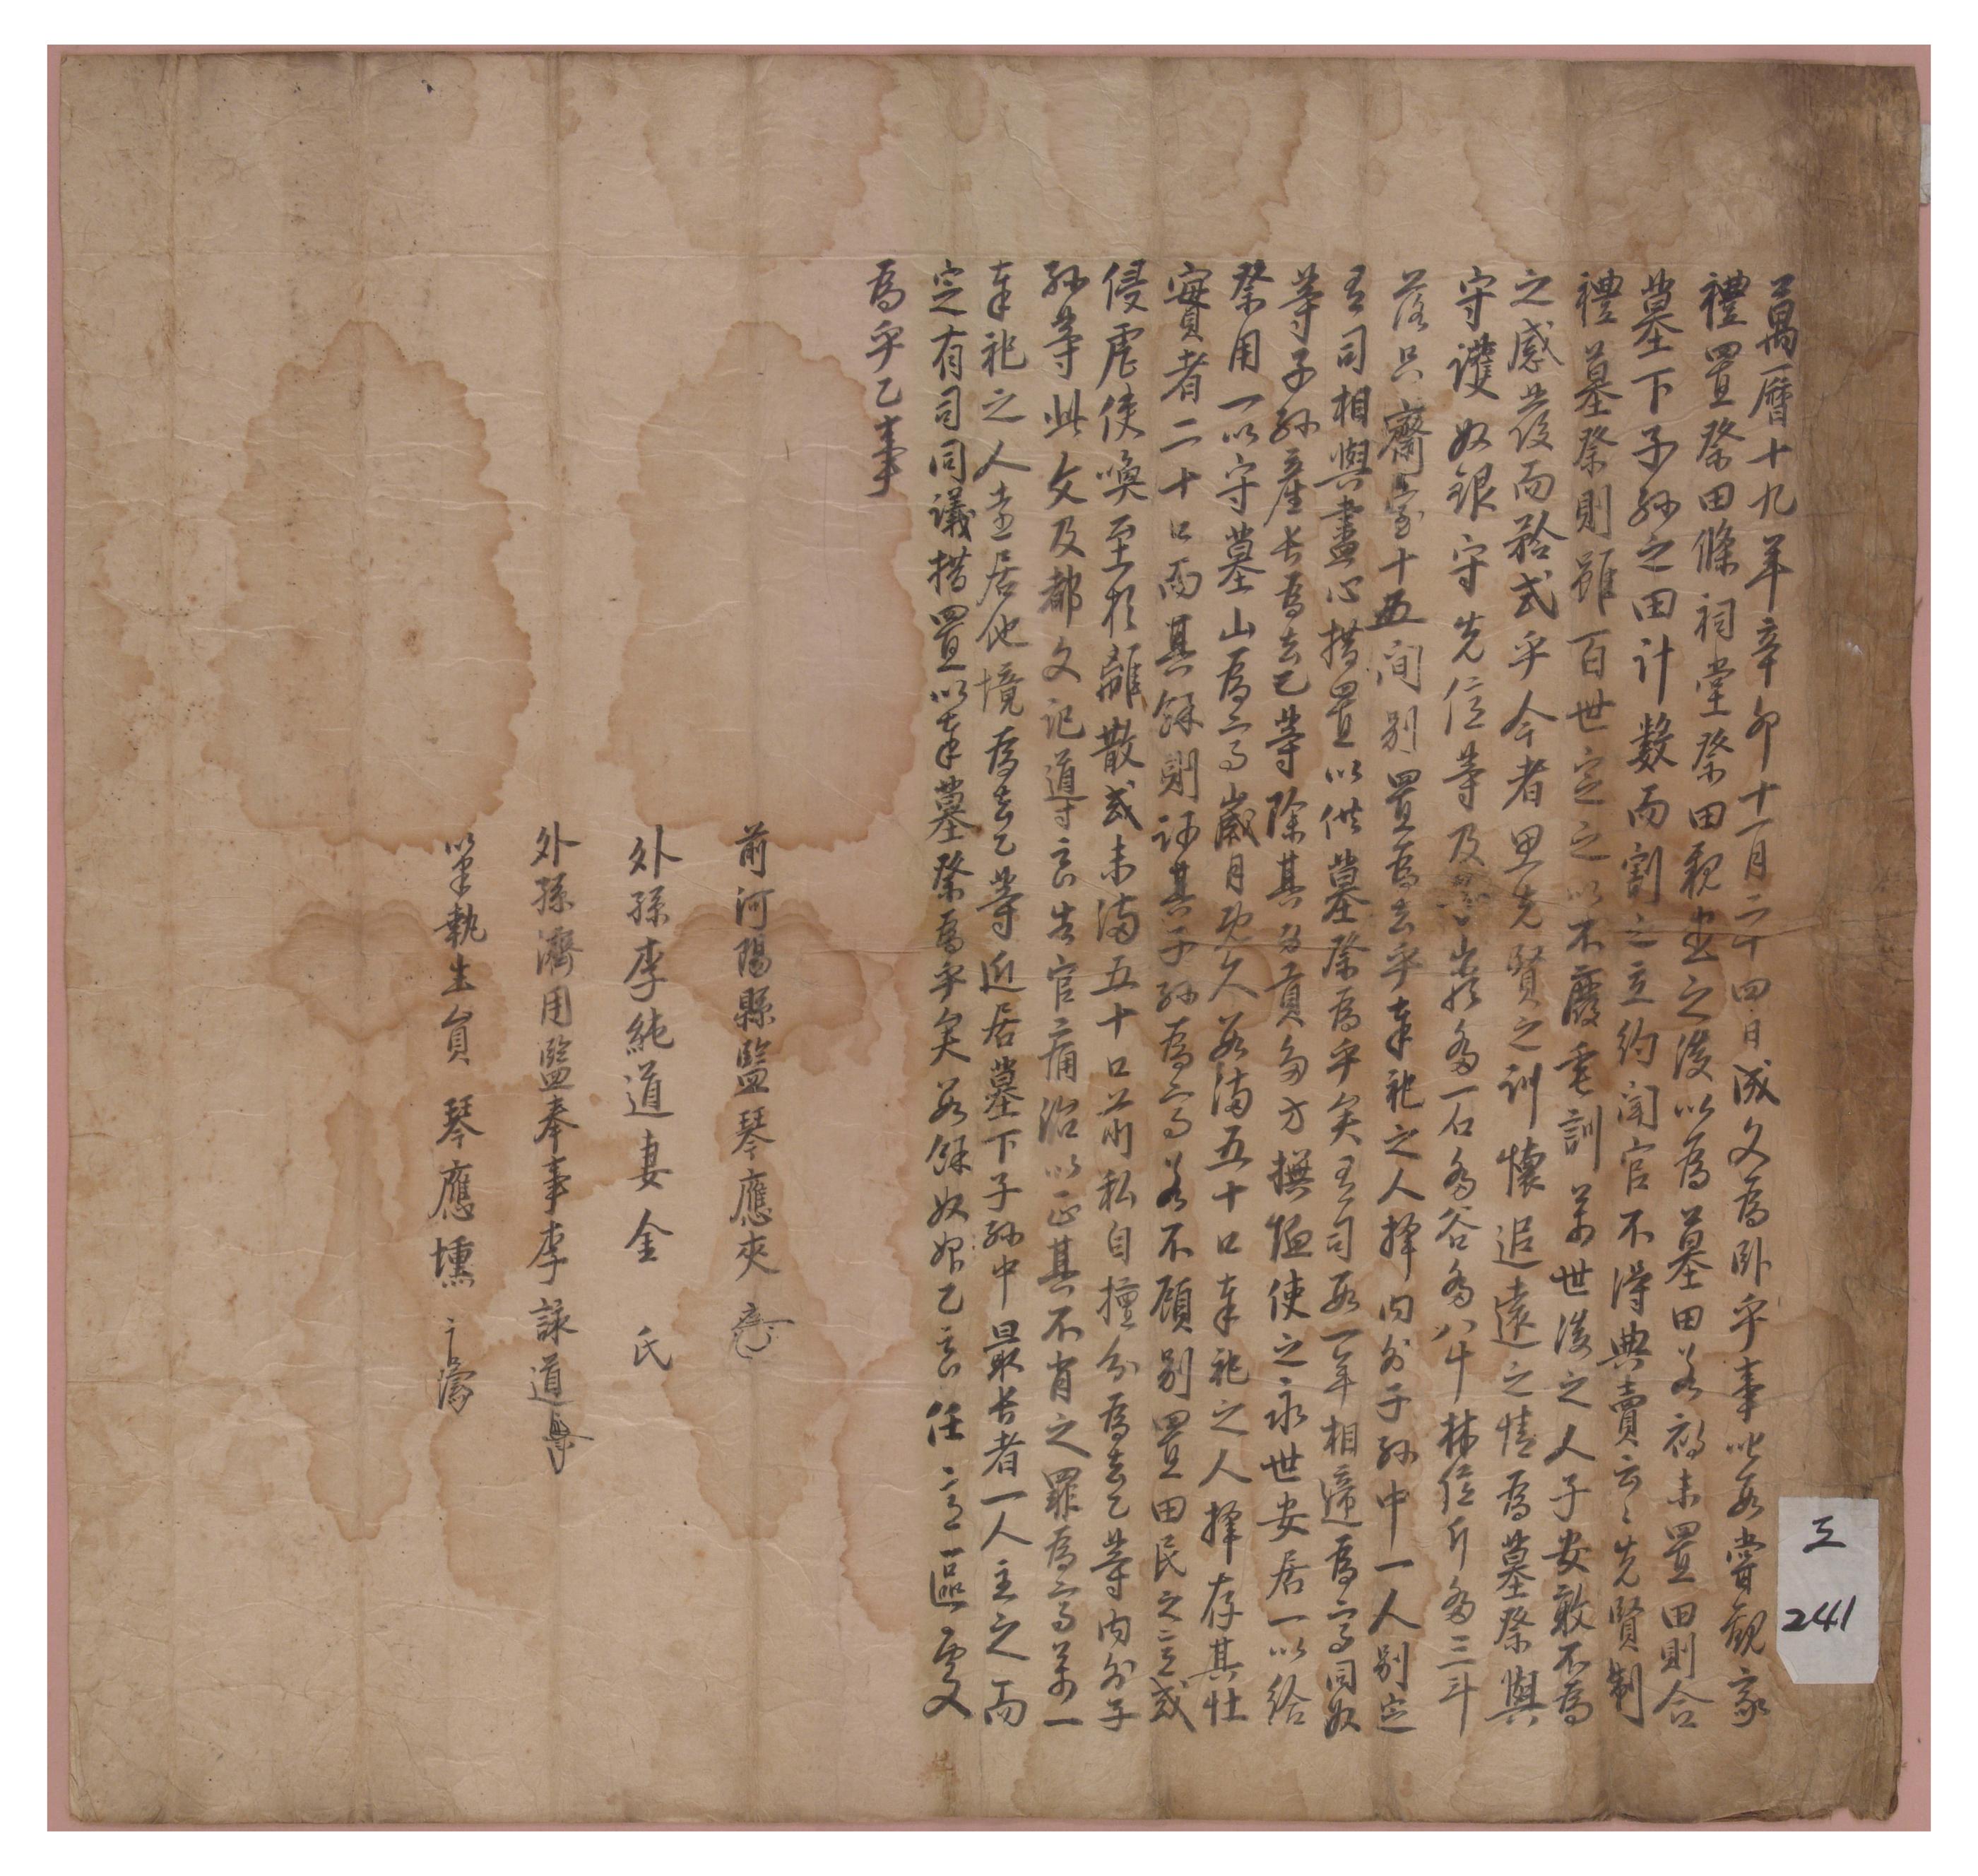 萬曆十九年辛卯十一月二十四日成文爲臥乎事叱段嘗觀家
禮置祭田條祠堂祭田親盡之後以爲墓田若初未置田則合
墓下子孫之田計數而割之立約聞官不得典賣云云先賢制
禮墓祭則雖百世定之以不廢垂訓萬世後之人子安敢不爲
之感發而矜式乎今者思先賢之訓懷追遠之情爲墓祭與
守護奴銀守先位等及 畓一石畓谷畓八斗林位斤畓三斗
落只齋室十五間別置爲去乎奉祀之人擇內外子孫中一人別定
有司相與盡心措置以供墓祭爲乎矣有司段一年相遞爲旀同奴
等子孫產長爲去乙等除其身貢多方撫恤使之永世安居一以給
祭用一以守墓山爲旀歲月旣久若滿五十口奉祀之人擇存其壯
實者二十口而其餘則許其子孫爲旀若不顧別置田民之意或
侵虐使喚至於離散或未滿五十口前私自擅分爲去乙等內外子
孫等此文及都文記導良告官痛治以正其不肖之罪爲旀萬一
奉祀之人遠居他境爲去乙等近居墓下子孫中最長者一人主之而
定有司同議措置以奉墓祭爲乎矣若餘奴婢乙良任意區處
爲乎乙事
前河陽縣監琴應夾
外孫李純道妻金 氏
外孫濟用監奉事李詠道
筆執生員 琴應壎
라
241